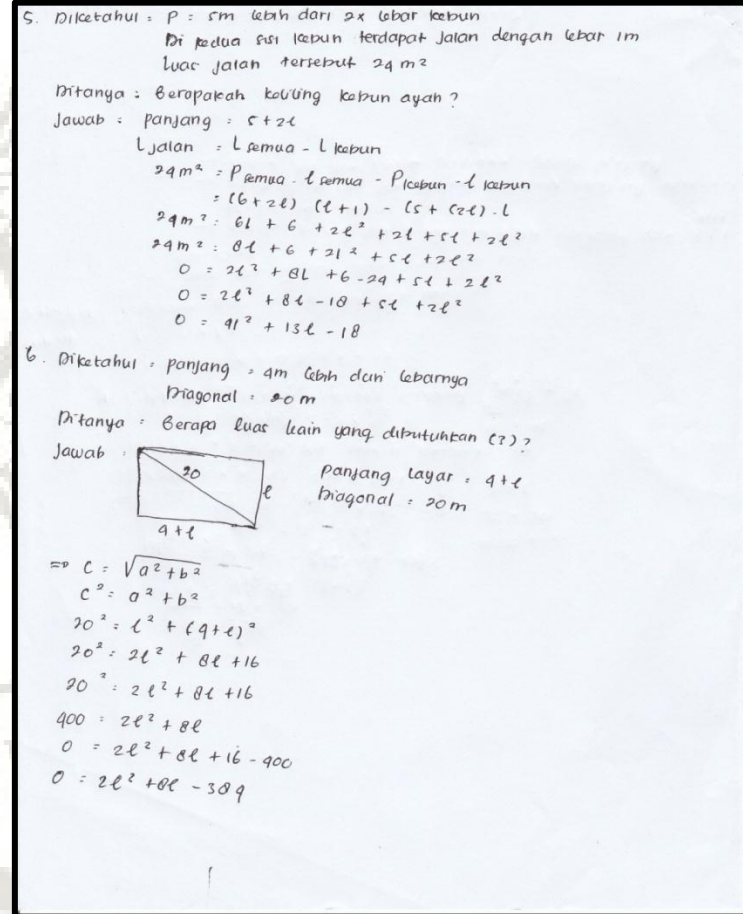 5. Diketahui : P = 5m lebih dari 2x lebar kebun
Di kedua sisi kebun terdapat jalan dengan lebar 1m
Luas jalan tersebut 24 m²
Ditanya : Berapakah keliling kebun ayah ?
Jawab : panjang = 5+2l
L jalan = L semua - L kebun
24m² = P semua . l semua - P kebun - l kebun
= (6+2l) (l+1) - (5 + (2l) . l
24m² = 6l + 6 + 2l² + 2l + 5l + 2l²
24m² = 8l + 6 + 2l² + 5l + 2l²
0 = 2l² + 8l + 6 - 24 + 5l + 2l²
0 = 2l² + 8l - 18 + 5l + 2l²
0 = 4l² + 13l - 18
6. Diketahui = panjang = 4m lebih dari lebarnya
Diagonal = 20 m
Ditanya = Berapa luas kain yang dibutuhkan (?) ?
Jawab :
20
l
4+l
Panjang layar = 4+l
Diagonal = 20 m
=> C = √a² + b²
C² = a² + b²
20² = l² + (4+l)²
20² = 2l² + 8l + 16
20² = 2l² + 8l + 16
400 = 2l² + 8l
0 = 2l² + 8l + 16 - 400
0 = 2l² + 8l - 384